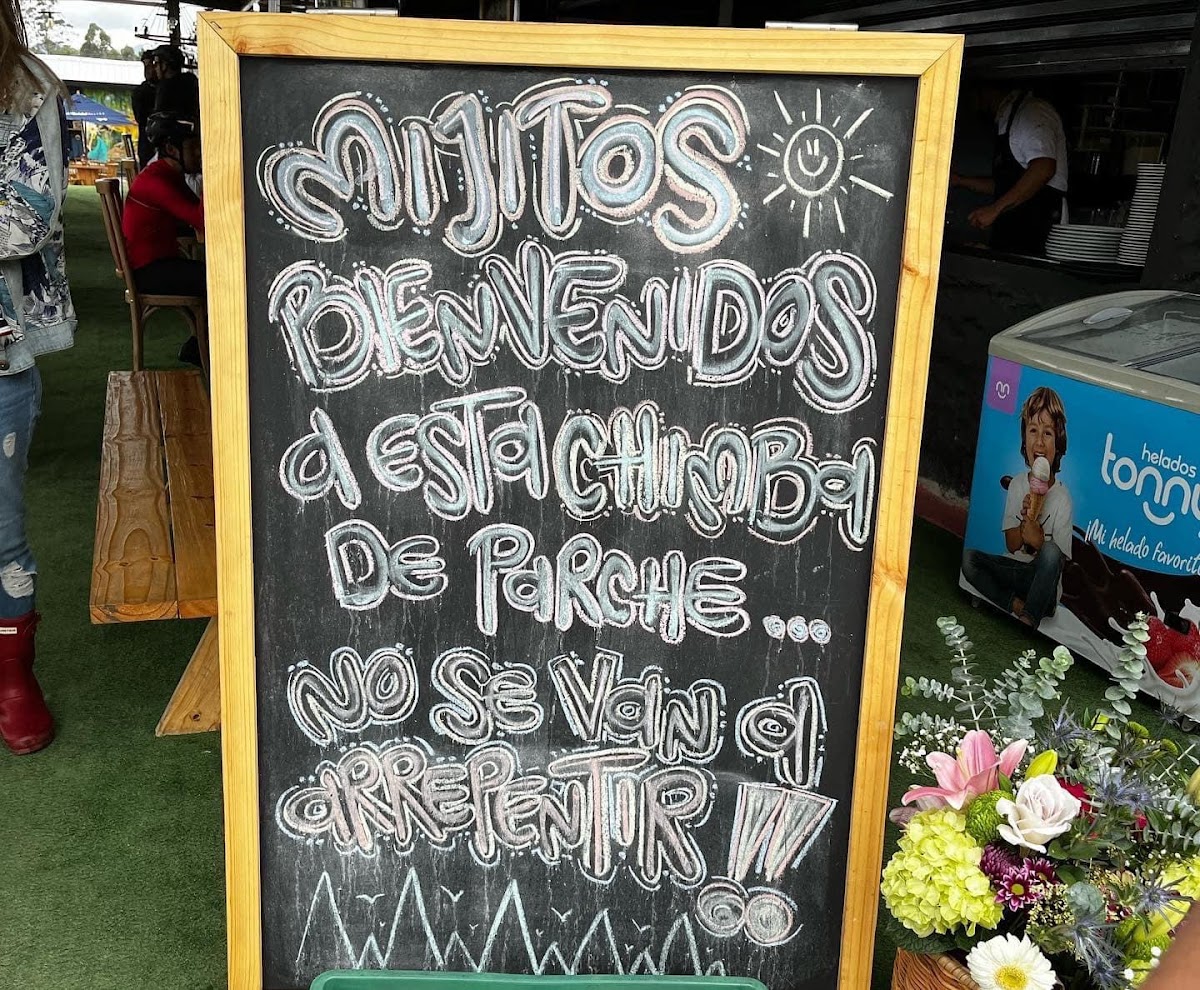 MIJITOS
BIENVENIDOS
a ESTa CHIMBa
DE PaRCHE...
NO SE Van a
aRREPENTIR!!
helados
tonny
¡Mi helado favorito